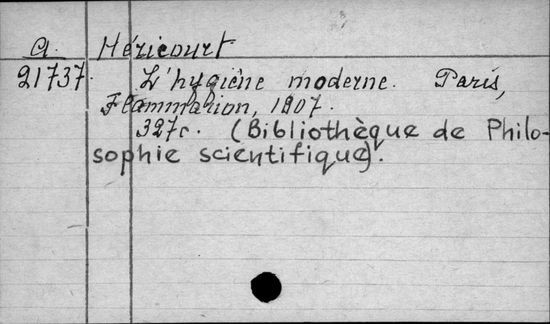 a. Héricourt
21737. L'hygiène moderne. Paris,
Flammarion, 1907.
327c. (Bibliothèque de Philo-
sophie scientifique).